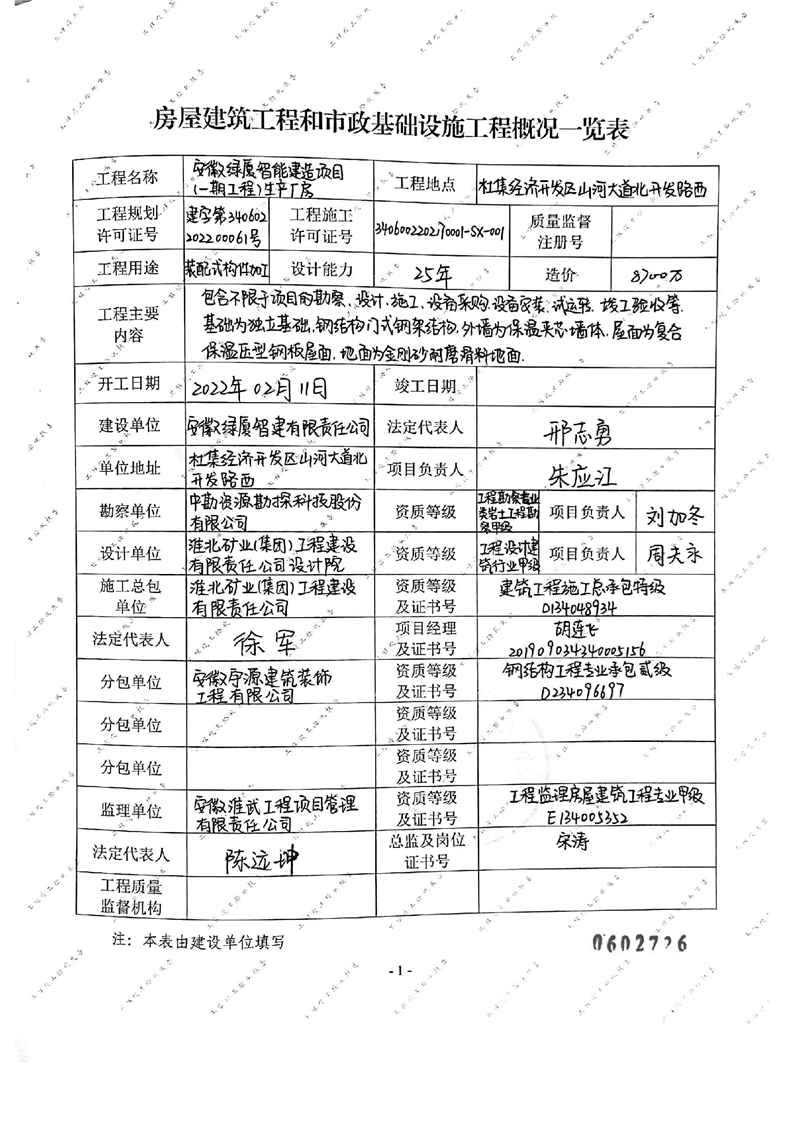 房屋建筑工程和市政基础设施工程概况一览表
工程名称 安徽绿厦智能建造项目 工程地点 杜集经济开发区山河大道北开发路西
(一期工程)生产厂房
工程规划 建字第340602 工程施工 3406002202170001-SX-001 质量监督
许可证号 202200061号 许可证号 注册号
工程用途 装配式构件加工 设计能力 25年 造价 8700万
工程主要 包含不限于项目的勘察、设计、施工、设备采购、设备安装、试运转、竣工验收等.
内容 基础为独立基础,钢结构门式钢架结构,外墙为保温夹芯墙体.屋面为复合
保温压型钢板屋面,地面为金刚砂耐磨骨料地面.
开工日期 2022年02月11日 竣工日期
建设单位 安徽绿厦智建有限责任公司 法定代表人 邢志勇
单位地址 杜集经济开发区山河大道北 项目负责人 朱应江
开发路西
勘察单位 中勘资源勘探科技股份 资质等级 工程勘察专业 项目负责人 刘加冬
有限公司 类岩土工程勘
察甲级
设计单位 淮北矿业(集团)工程建设 资质等级 工程设计建 项目负责人 周夫永
有限责任公司设计院 筑行业甲级
施工总包 淮北矿业(集团)工程建设 资质等级 建筑工程施工总承包特级
单位 有限责任公司 及证书号 D134048934
法定代表人 徐军 项目经理 胡连飞
及证书号 201909034340005156
分包单位 安徽宇源建筑装饰 资质等级 钢结构工程专业承包贰级
工程有限公司 及证书号 D234096697
分包单位 资质等级
及证书号
分包单位 资质等级
及证书号
监理单位 安徽淮武工程项目管理 资质等级 工程监理房屋建筑工程专业甲级
有限责任公司 及证书号 E134005352
法定代表人 陈远坤 总监及岗位 宋涛
证书号
工程质量
监督机构
注：本表由建设单位填写
0602726
- 1 -